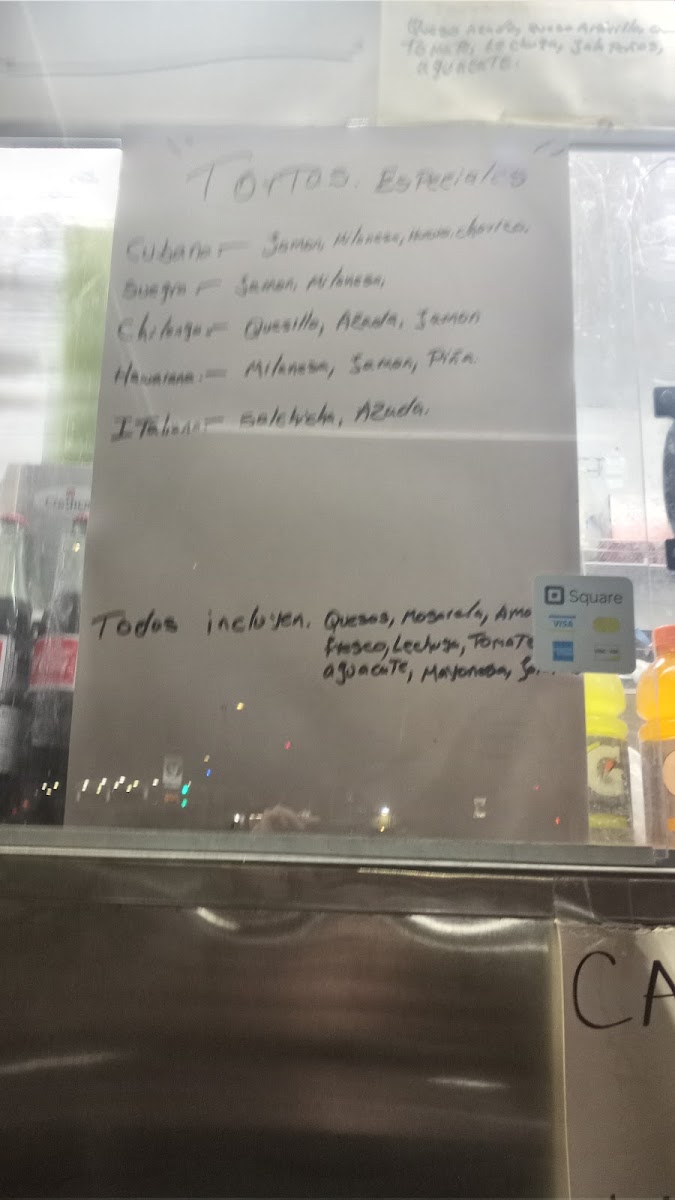 Tomate, Lechuga,
aguacate.
"TORTAS. Especiales"
Cubana = Jamon, Milanesa, Huevo, chorizo.
Suegra = Jamon, Milanesa,
Chilanga = Quesillo, Azada, Jamon
Hawaiana = Milanesa, Jamon, Piña.
ITaliana = Salchicha, Azada.
Todas incluyen. Quesos, Mosarela, Ama
fresco, Lechuga, Tomate
aguacate, Mayonesa,
Square
VISA
G
CA